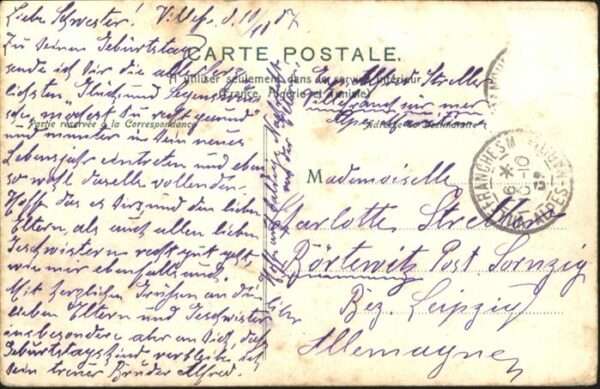 Liebe Schwester! V.illef. d. 10/10 07
Zu deinem Geburtstag
sende ich dir die aller herz-
lichsten Glück und Segenswün-
sche, möchest du recht gesund
und munter in dein neues
Lebensjahr eintreten und eben
so wohl dasselbe vollenden.
Hoffe das es dir und den lieben
Eltern, als auch allen lieben
Geschwistern recht gut geht
wie mir ebenfalls auch.
Mit herzlichen Grüßen an die
lieben Eltern und Geschwister
insbesondere aber an dich, das
Geburtstagskind verbleibe ich
dein treuer Bruder Alfred.
CARTE POSTALE.
A utiliser seulement dans le service intérieur
(France, Algérie et Tunisie)
Partie réservée à la Correspondance
Adresse du Destinataire
Alfred Streller
Villefranche sur mer
Alpes Maritimes
Mademoiselle
Charlotte Streller
Börtewitz Post Sornzig
Bez. Leipzig
Allemagne
VILLEFRANCHE S M
ALPES-